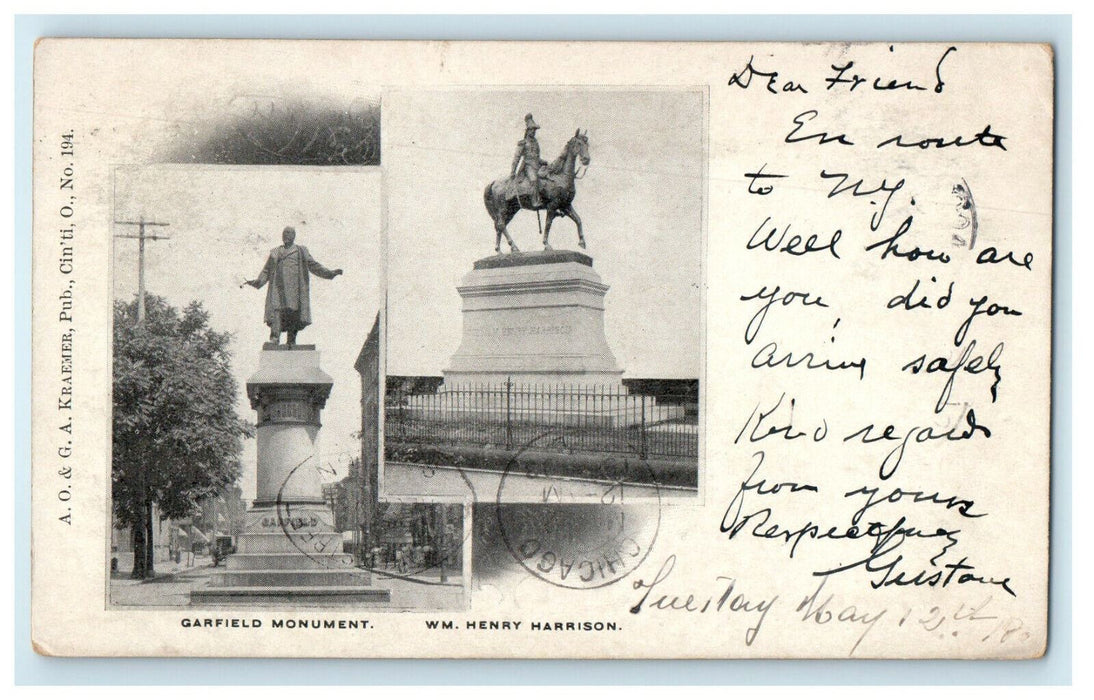 A. O. & G. A. KRAEMER, Pub., Cin'ti, O., No. 194.
Dear Friend
En route
to N.Y.
Well how are
you, did you
arrive safely
Kind regards
from yours
Respectfully
Gustave
Tuesday May 12th
WM. HENRY HARRISON
GARFIELD
CHICAGO
GARFIELD MONUMENT.
WM. HENRY HARRISON.